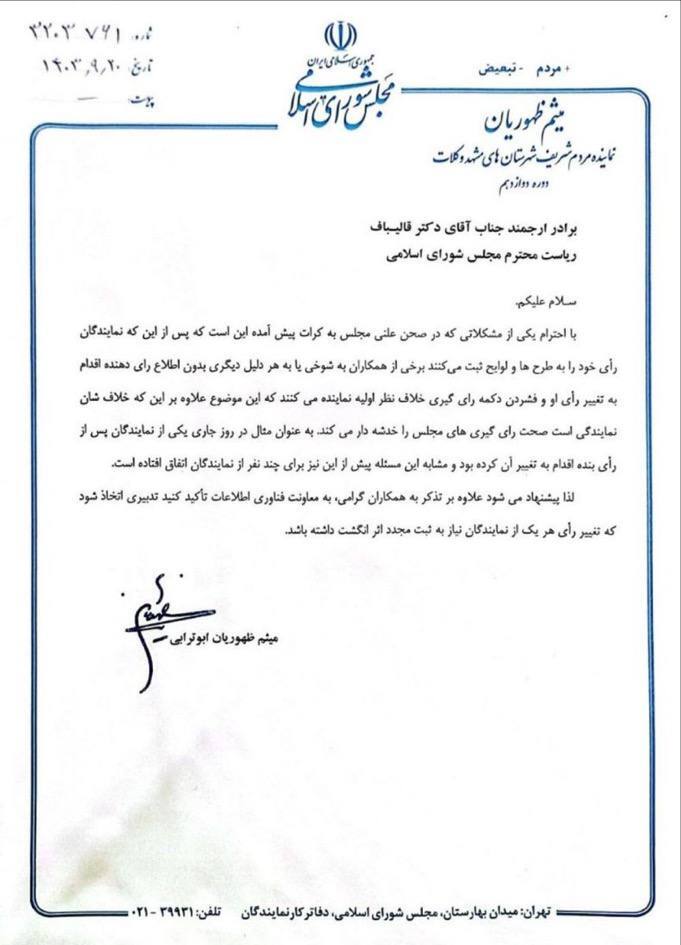 شماره: ۳۲۰۳ ۷۶۱
تاریخ: ۱۴۰۳٫۹٫۲۰
پیوست: —
جمهوری اسلامی ایران
مجلس شورای اسلامی
+ مردم - تبعیض
میثم ظهوریان
نماینده مردم شریف شهرستان های مشهد و کلات
دوره دوازدهم
برادر ارجمند جناب آقای دکتر قالیباف
ریاست محترم مجلس شورای اسلامی
سلام علیکم.
با احترام یکی از مشکلاتی که در صحن علنی مجلس به کرات پیش آمده این است که پس از این که نمایندگان
رأی خود را به طرح ها و لوایح ثبت می‌کنند برخی از همکاران به شوخی یا به هر دلیل دیگری بدون اطلاع رای دهنده اقدام
به تغییر رأی او و فشردن دکمه رای گیری خلاف نظر اولیه نماینده می کنند که این موضوع علاوه بر این که خلاف شان
نمایندگی است صحت رای گیری های مجلس را خدشه دار می کند. به عنوان مثال در روز جاری یکی از نمایندگان پس از
رأی بنده اقدام به تغییر آن کرده بود و مشابه این مسئله پیش از این نیز برای چند نفر از نمایندگان اتفاق افتاده است.
لذا پیشنهاد می شود علاوه بر تذکر به همکاران گرامی، به معاونت فناوری اطلاعات تأکید کنید تدبیری اتخاذ شود
که تغییر رأی هر یک از نمایندگان نیاز به ثبت مجدد اثر انگشت داشته باشد.
میثم ظهوریان ابوترابی
تهران: میدان بهارستان، مجلس شورای اسلامی، دفاتر کار نمایندگان تلفن: ۳۹۹۳۱ - ۰۲۱